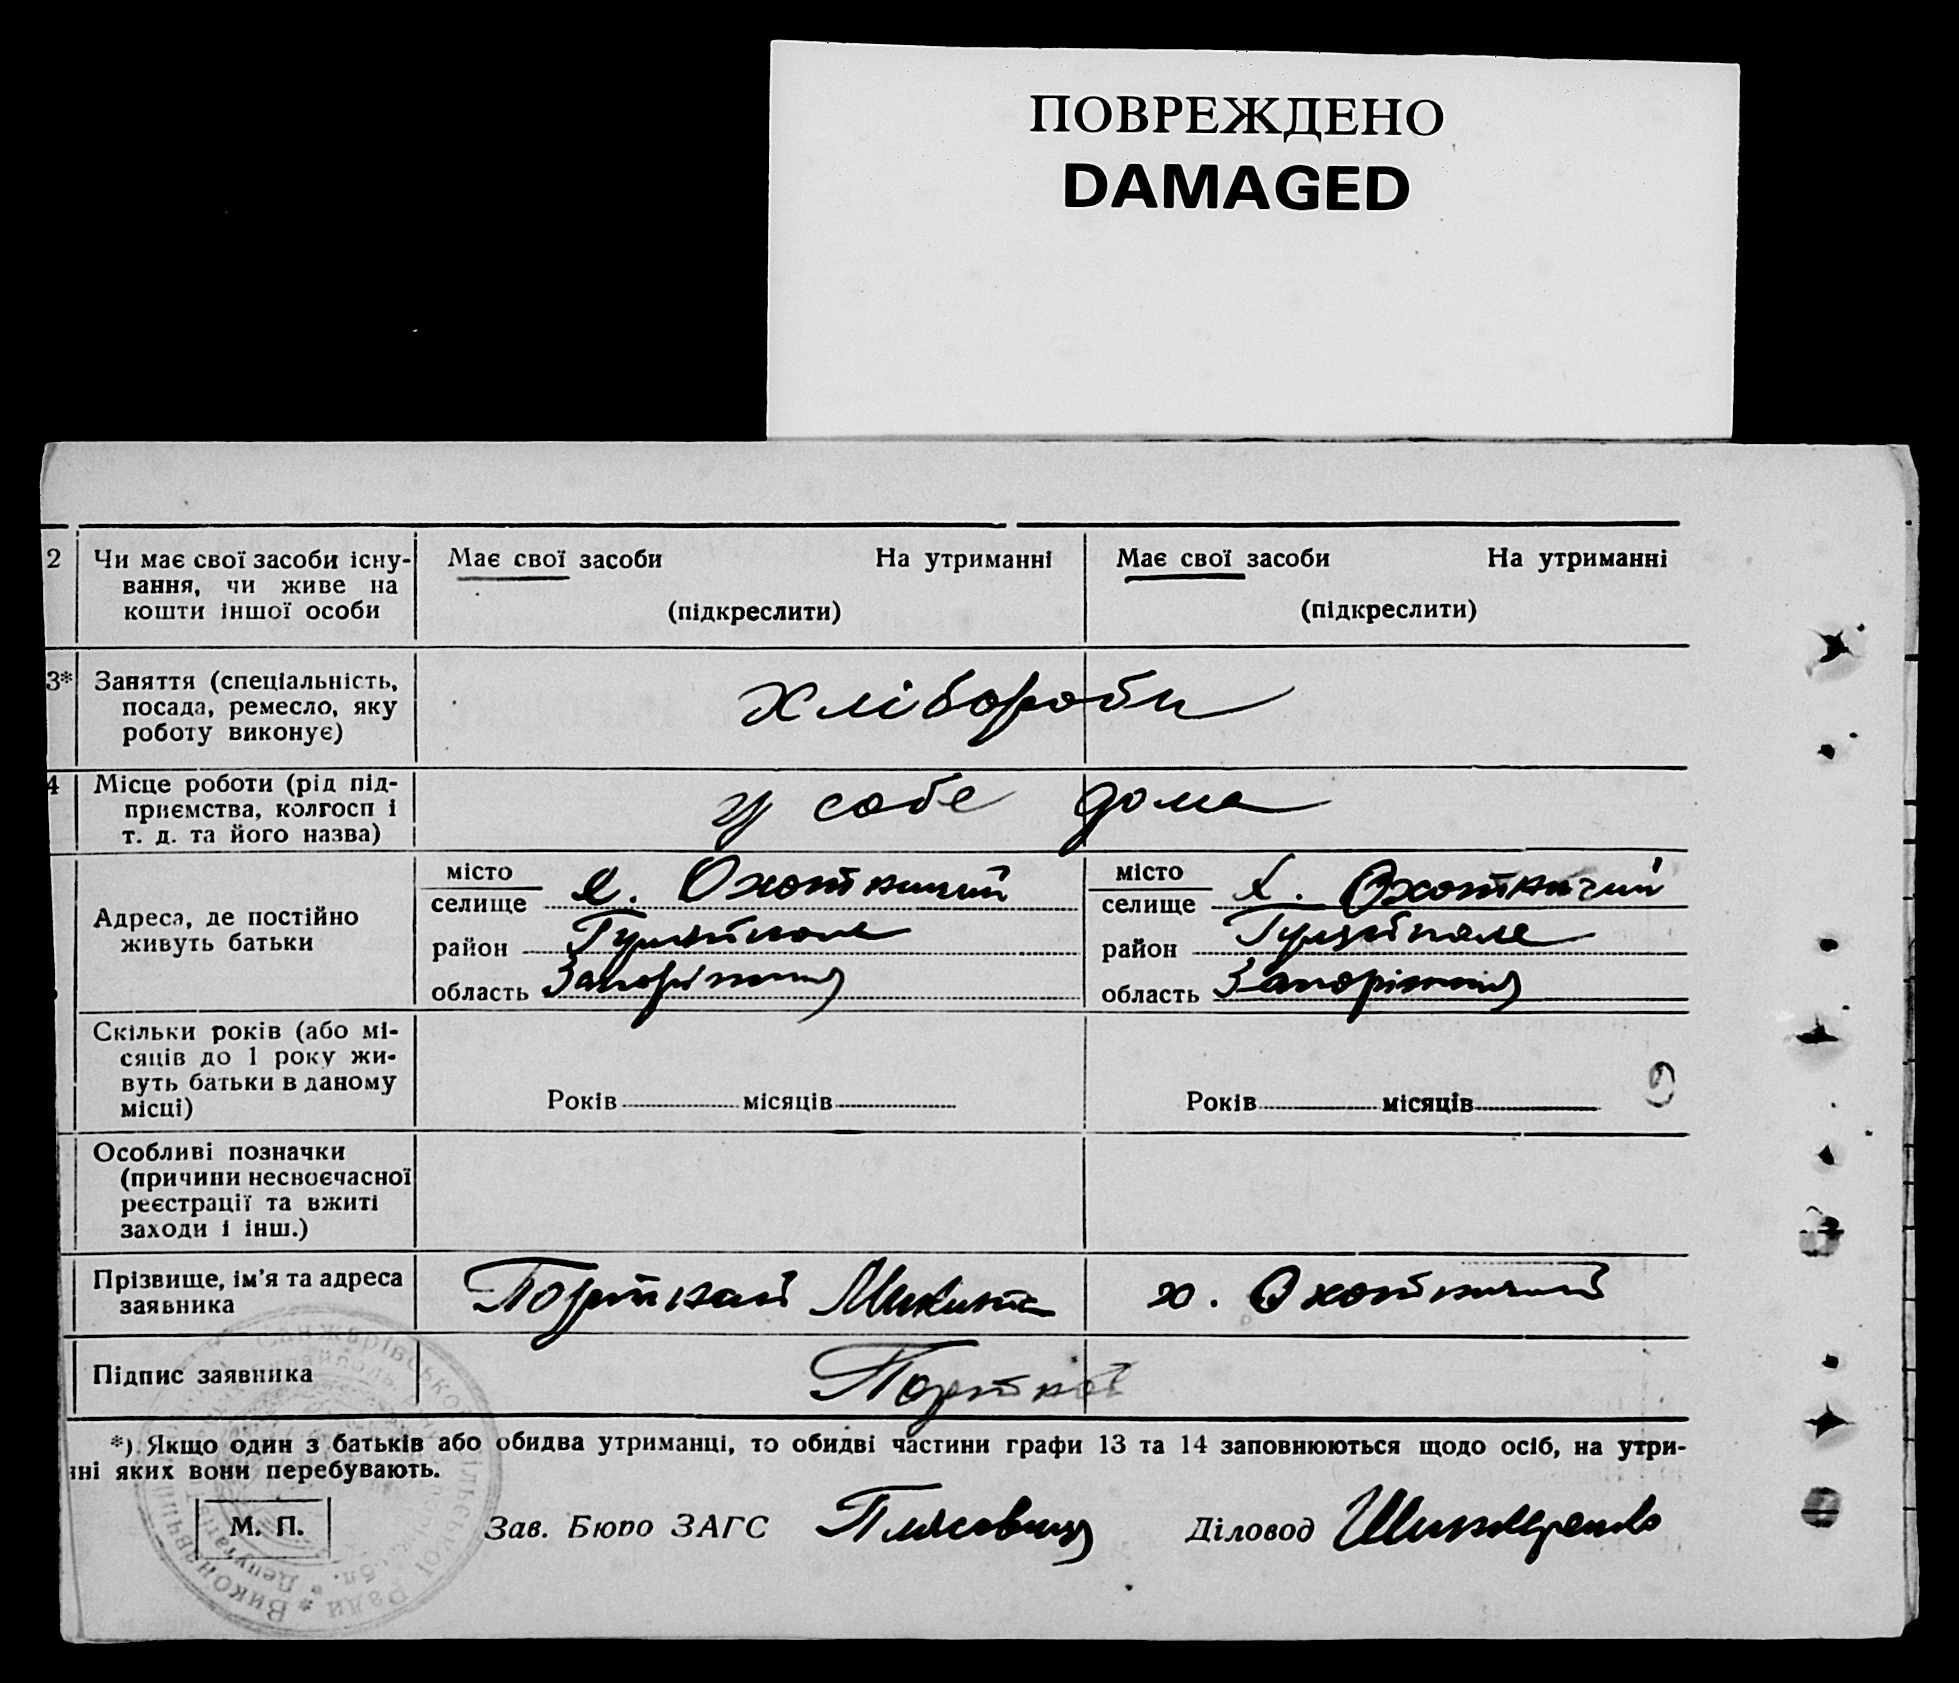 ПОВРЕЖДЕНО
DAMAGED
2 Чи має свої засоби існу-
вання, чи живе на
кошти іншої особи
Має свої засоби На утриманні
(підкреслити)
Має свої засоби На утриманні
(підкреслити)
3* Заняття (спеціальність,
посада, ремесло, яку
роботу виконує)
хлібороби
4 Місце роботи (рід під-
приємства, колгосп і
т. д. та його назва)
у себе дома
Адреса, де постійно
живуть батьки
місто
селище Охотничий
район Гуляйполе
область
місто
селище х. Охотничий
район Гуляйполе
область
Скільки років (або мі-
сяців до 1 року жи-
вуть батьки в даному
місці)
Років місяців
Років місяців
Особливі позначки
(причини несвоєчасної
реєстрації та вжиті
заходи і інш.)
Прізвище, ім'я та адреса
заявника
Порткай Микита х. Охотничий
Підпис заявника
*) Якщо один з батьків або обидва утриманці, то обидві частини графи 13 та 14 заповнюються щодо осіб, на утри-
ні яких вони перебувають.
М. П.
Зав. Бюро ЗАГС
Діловод